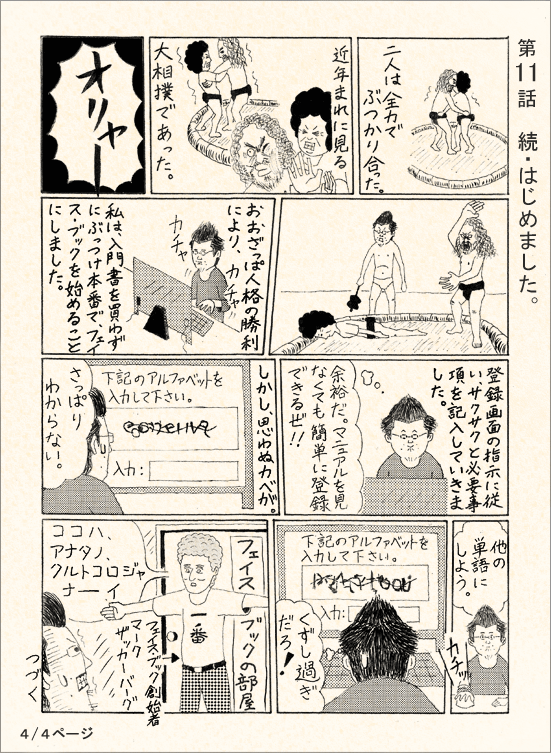 第11話 続・はじめました。
二人は全力で
ぶつかり合った。
近年まれに見る
大相撲であった。
オリャー
おおざっぱ人格の勝利
により、
カチャ
カチャ
私は、入門書を買わず
にぶっつけ本番で、フェイ
ス・ブックを始めること
にしました。
登録画面の指示に従
いサクサクと必要事
項を記入していきま
した。
余裕だ。マニュアルを見
なくても簡単に登録
できるぜ!!
しかし、思わぬカベが。
下記のアルファベットを
入力して下さい。
入力:
さっぱり
わからない。
他の
単語に
しよう。
カチッ
下記のアルファベットを
入力して下さい。
入力:
くずし過ぎ
だろ!
フェイスブックの部屋
一番
フェイスブック創始者
マーク
ザッカーバーグ
ココハ、
アナタノ、
クルトコロジャ
ナーイ
つづく
4/4ページ